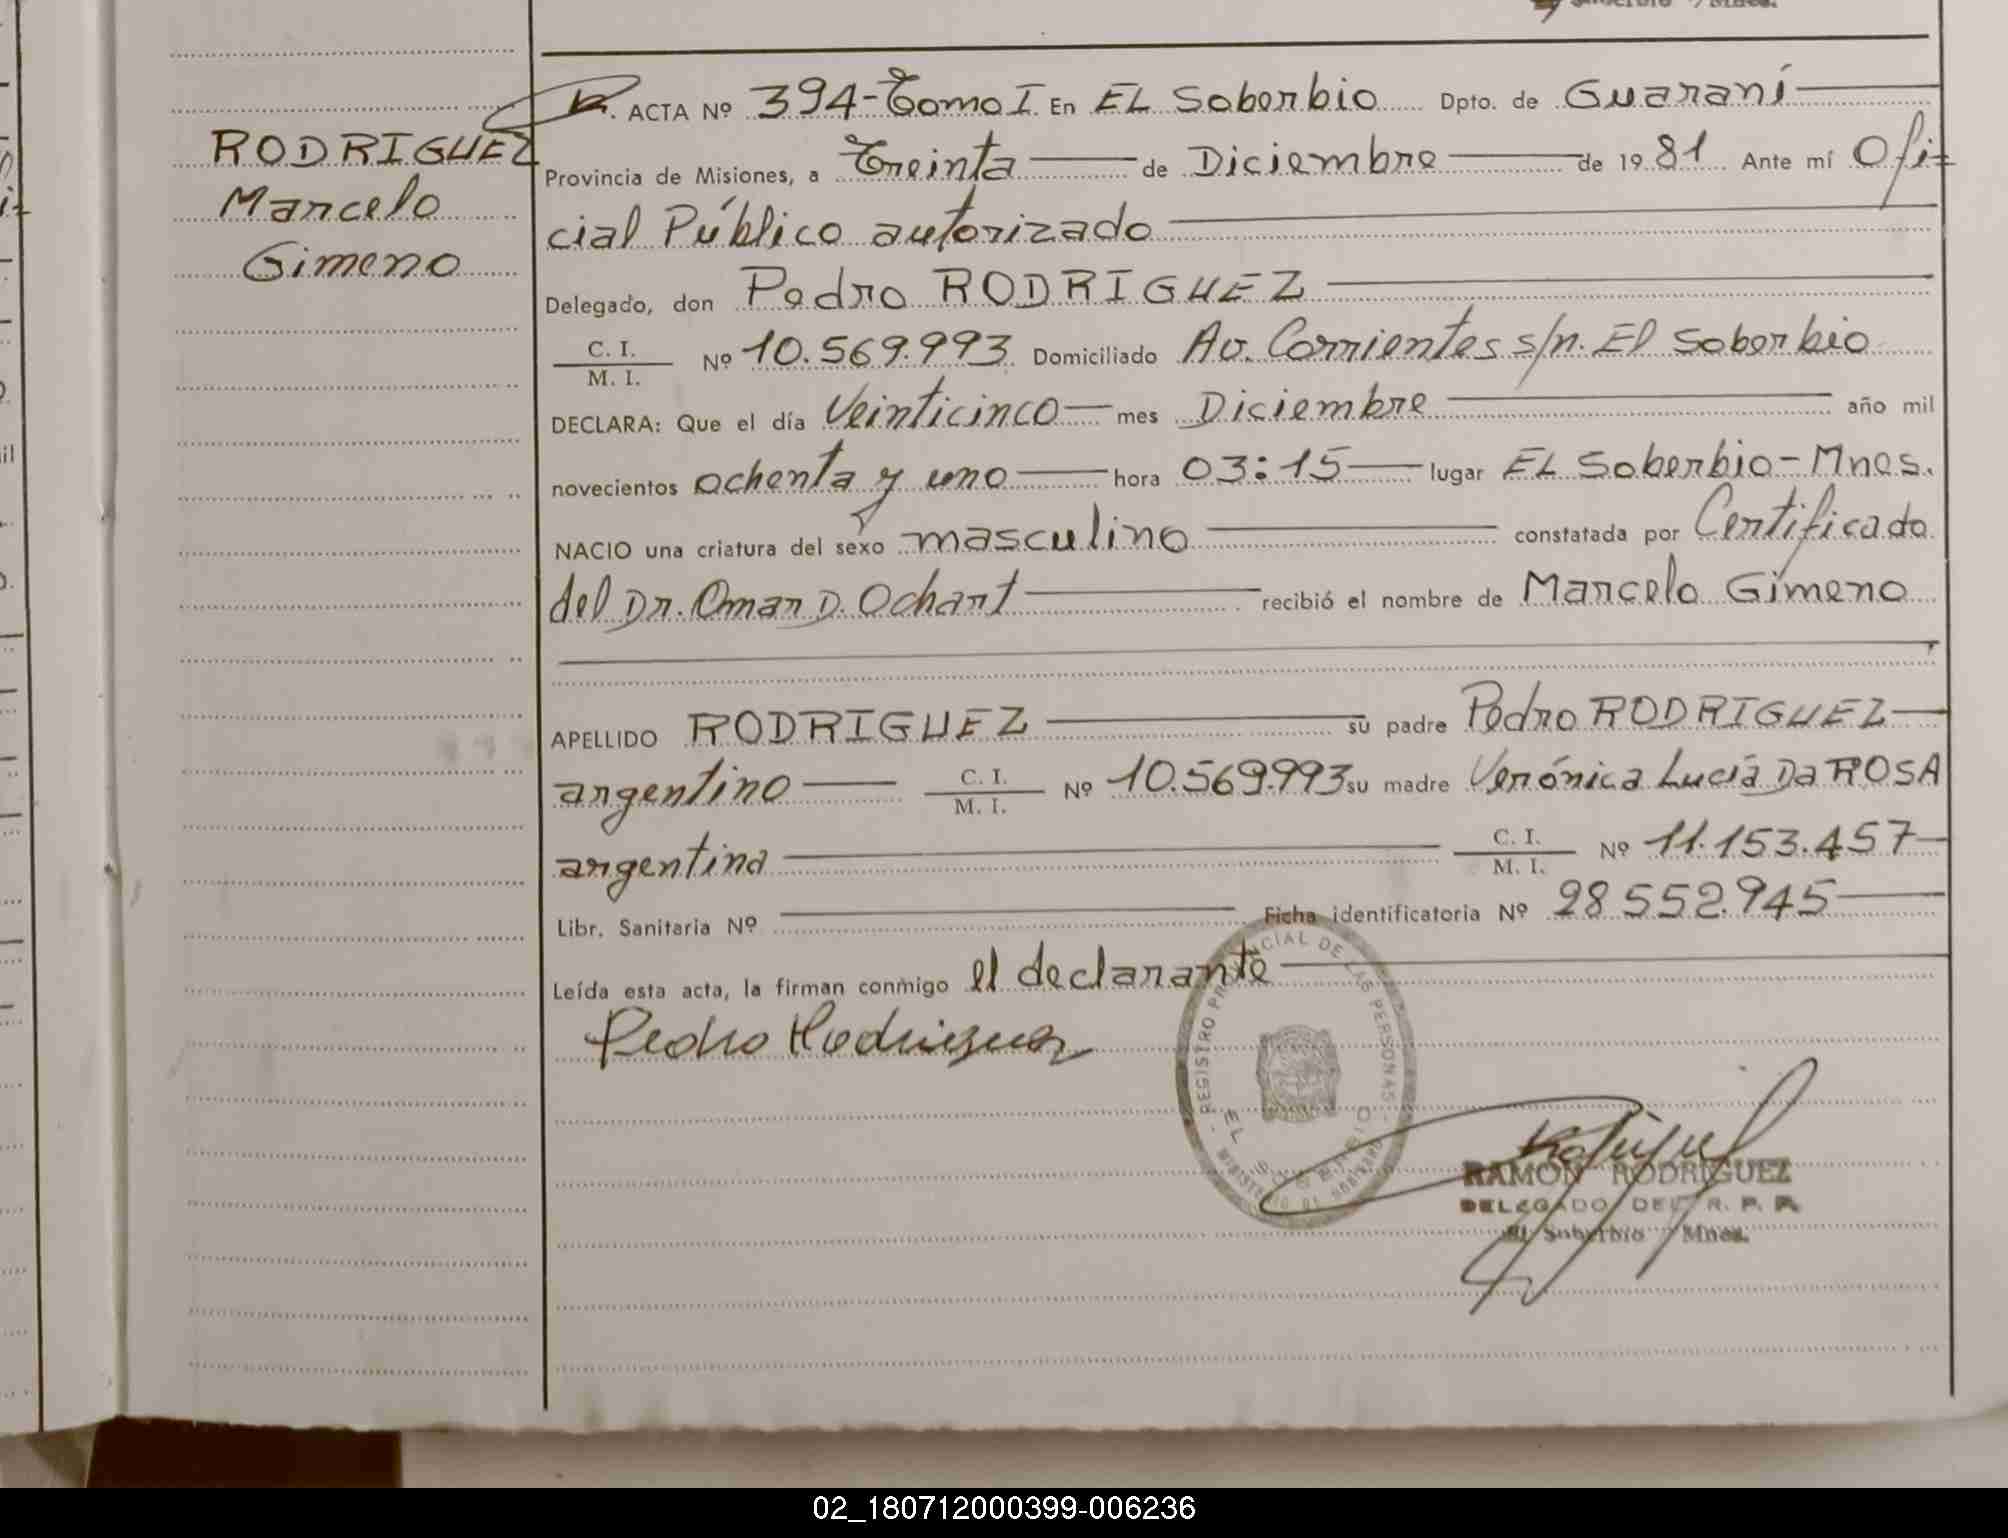 RODRIGUEZ
Marcelo
Gimeno
ACTA Nº 394-Tomo I En EL Soberbio Dpto. de Guaraní
Provincia de Misiones, a Treinta de Diciembre de 1981 Ante mí Ofi-
cial Público autorizado
Delegado, don Pedro RODRIGUEZ
C. I.
M. I. Nº 10.569.993 Domiciliado Av. Corrientes s/n. El Soberbio
DECLARA: Que el día Veinticinco mes Diciembre año mil
novecientos ochenta y uno hora 03:15 lugar EL Soberbio-Mnes.
NACIO una criatura del sexo masculino constatada por Certificado
del Dr. Omar D. Ochart recibió el nombre de Marcelo Gimeno
APELLIDO RODRIGUEZ su padre Pedro RODRIGUEZ
argentino C. I. M. I. Nº 10.569.993 su madre Verónica Lucía Da ROSA
argentina C. I. M. I. Nº 11.153.457
Libr. Sanitaria Nº Ficha identificatoria Nº 28.552.945
Leída esta acta, la firman conmigo el declarante
Pedro Rodriguez
REGISTRO PROVINCIAL DE LAS PERSONAS
EL SOBERBIO
MINISTERIO DE GOBIERNO
RAMON RODRIGUEZ
DELEGADO DEL R. P. P.
El Soberbio - Mnes.
02_180712000399-006236